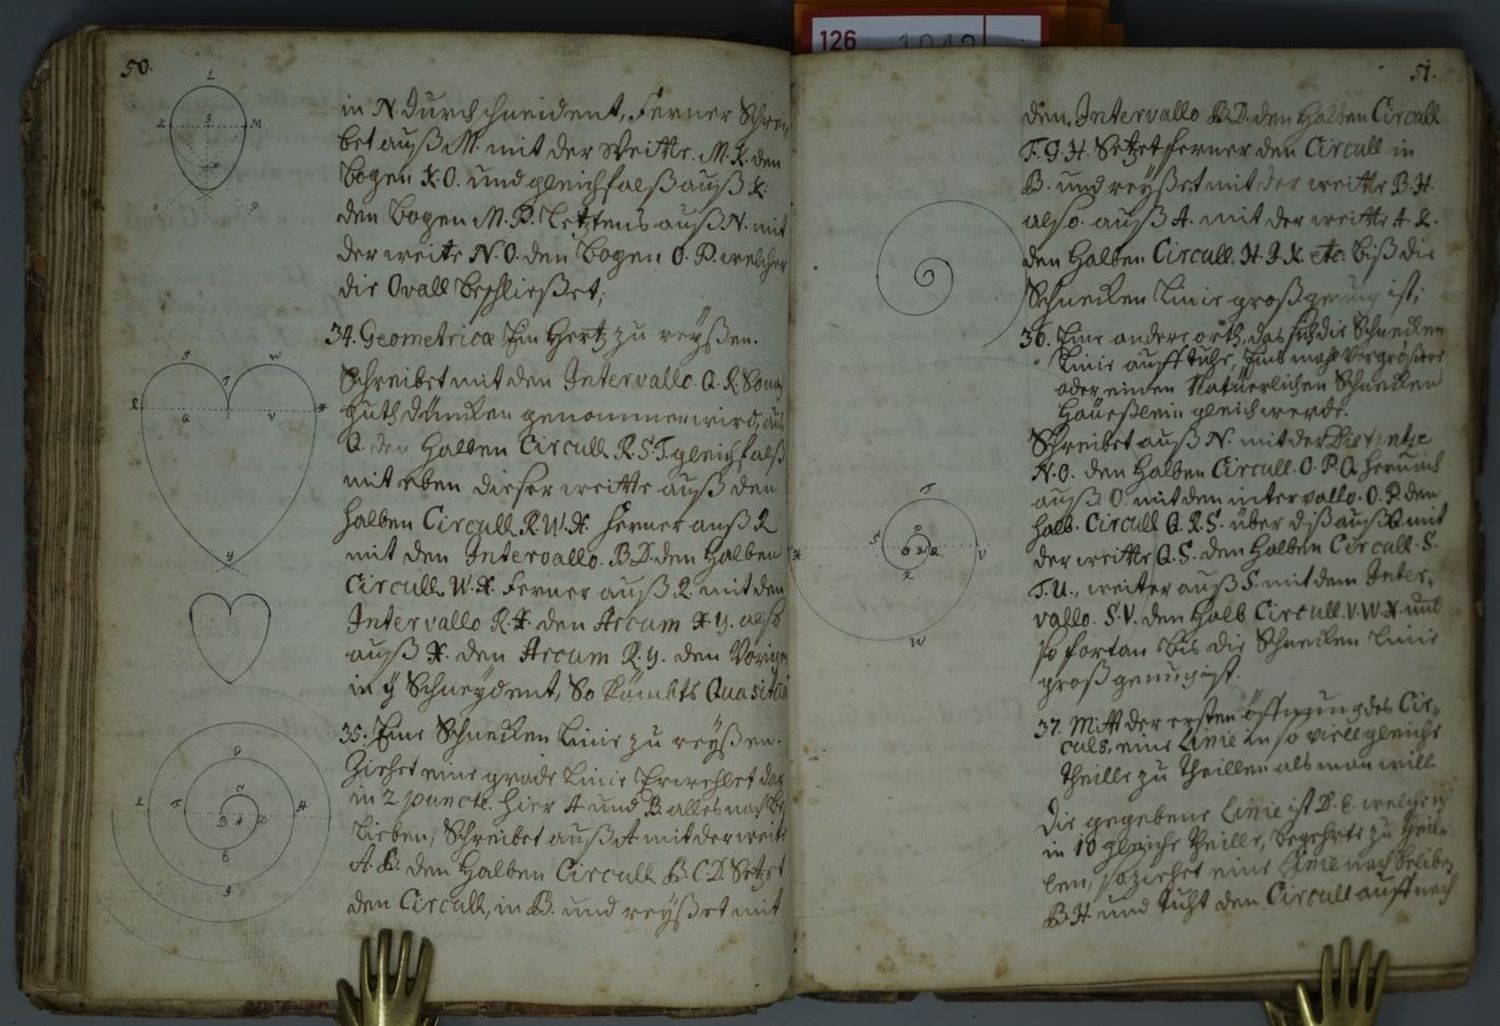 126
50.
in N. durchschneident, Ferner Schrei,
bet auß M. mit der Weitte. M. K. den
Bogen K. O. und gleichfalß auß K.
den Bogen M. P. Letztens auß N. mit
der weite N. O. den Bogen O. P. welcher
die Ovall beschließet;
34. Geometrice Ein Hertz zu reyßen.
Schreibet mit den Intervallo. Q. R. So
guth düncken genommen wird, auß
Q. den Halben Circull R. S. T. gleichfalß
mit eben dieser weitte auß den
halben Circull R. W. X. Ferner auß R
mit den Intervallo. B. D. den Halben
Circull. W. X. Ferner auß R. mit den
Intervallo R. X. den Arcum X. y. also
auß X. den Arcum R. y. den Vorigen
in y Schneydent, So kömbts Quasitum
35. Eine Schnecken Linie zu reyßen.
Ziehet eine grade Linie Erwehlet dar
in 2. puncte. hier A und B. alles nach be
Lieben, Schreibet auß A mit der weite
A. B. den Halben Circull B. C. D. Setzet
den Circull, in B. und reyßet mit
51.
den, Intervallo B. D. den Halben Circull
F. G. H. Setzet ferner den Circull in
B. und reyßet mit der weitte B. H.
also. auß A. mit der weitte A.
den Halben Circull. H. I. K. etc. biß die
Schnecken Linie groß genung ist;
36. Eine andere orth, das sich die Schnecken
Linie auffthuhe, Eins mahl vergrößere
oder einden Natüerlichen Schnecken
Häueßlein gleich werde.
Schreibet auß N. mit der Distantze
N. O. den Halben Circull. O. P. Q. hernach
auß O. mit den intervallo. O. P. den
halb. Circull Q. R. S. über diß auß Q. mit
der weitte Q. S. den Halben Circull. S.
T. U., weiter auß S. mit dem Inter,
vallo. S. V. den Halb Circull. V. W. X. und
so fortan bis die Schnecken Linie
groß genung ist.
37. Mitt der ersten öffnung des Cir,
culs, eine Linie in so viell gleiche
theille zu theillen als man will
Die gegebene Linie ist D. E. welche
in 10 gleiche theille, begehrte zu theil,
len, so ziehet eine Linie nach belieben
B. H. und tuht den Circull auff nach